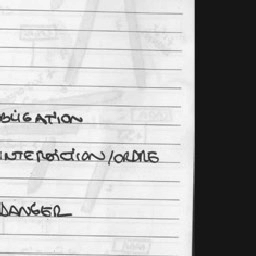 BLIGATION
INTERDICTION/ORDRE
DANGER